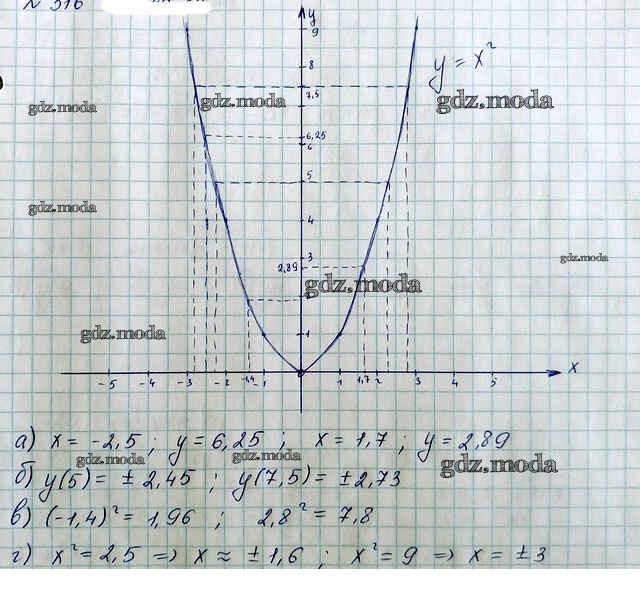 № 316
y
9
y = x²
8
gdz.moda
7,5
gdz.moda
gdz.moda
6,25
6
5
gdz.moda
4
3
2,89
gdz.moda
gdz.moda
gdz.moda
1
x
-5 -4 -3 -2 -1,4 -1 0 1 1,7 2 3 4 5
а) x = -2,5 ; y = 6,25 ; x = 1,7 ; y = 2,89
gdz.moda gdz.moda gdz.moda
б) y(5) = ± 2,45 ; y(7,5) = ± 2,73
в) (-1,4)² = 1,96 ; 2,8² = 7,8
г) x² = 2,5 => x ≈ ± 1,6 ; x² = 9 => x = ± 3